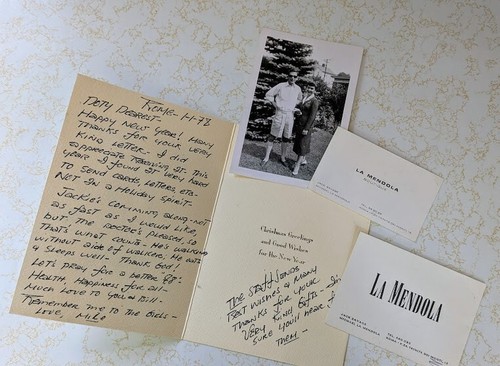 Rome - 1-1-78
Doty Dearest -
Happy New Year! Many
thanks for your very
kind letter - I did
appreciate receiving it. This
year I found it very hard
to send cards, letters, etc -
Not in a holiday spirit -
Jackie's comming along - not
as fast as I would like,
but the doctor's pleased, so
that's what counts - He's walking
without aide of walker; he eats
& sleeps well - thank God!
Let's pray for a better 78 -
Health, happiness for all.
Much love to you & Bill -
Remember me to the girls -
Love, Mike
Christmas Greetings
and Good Wishes
for the New Year
The staff sends
best wishes & many
thanks for your
very kind gifts -
sure you'll hear from
them -
LA MENDOLA
LA MENDOLA